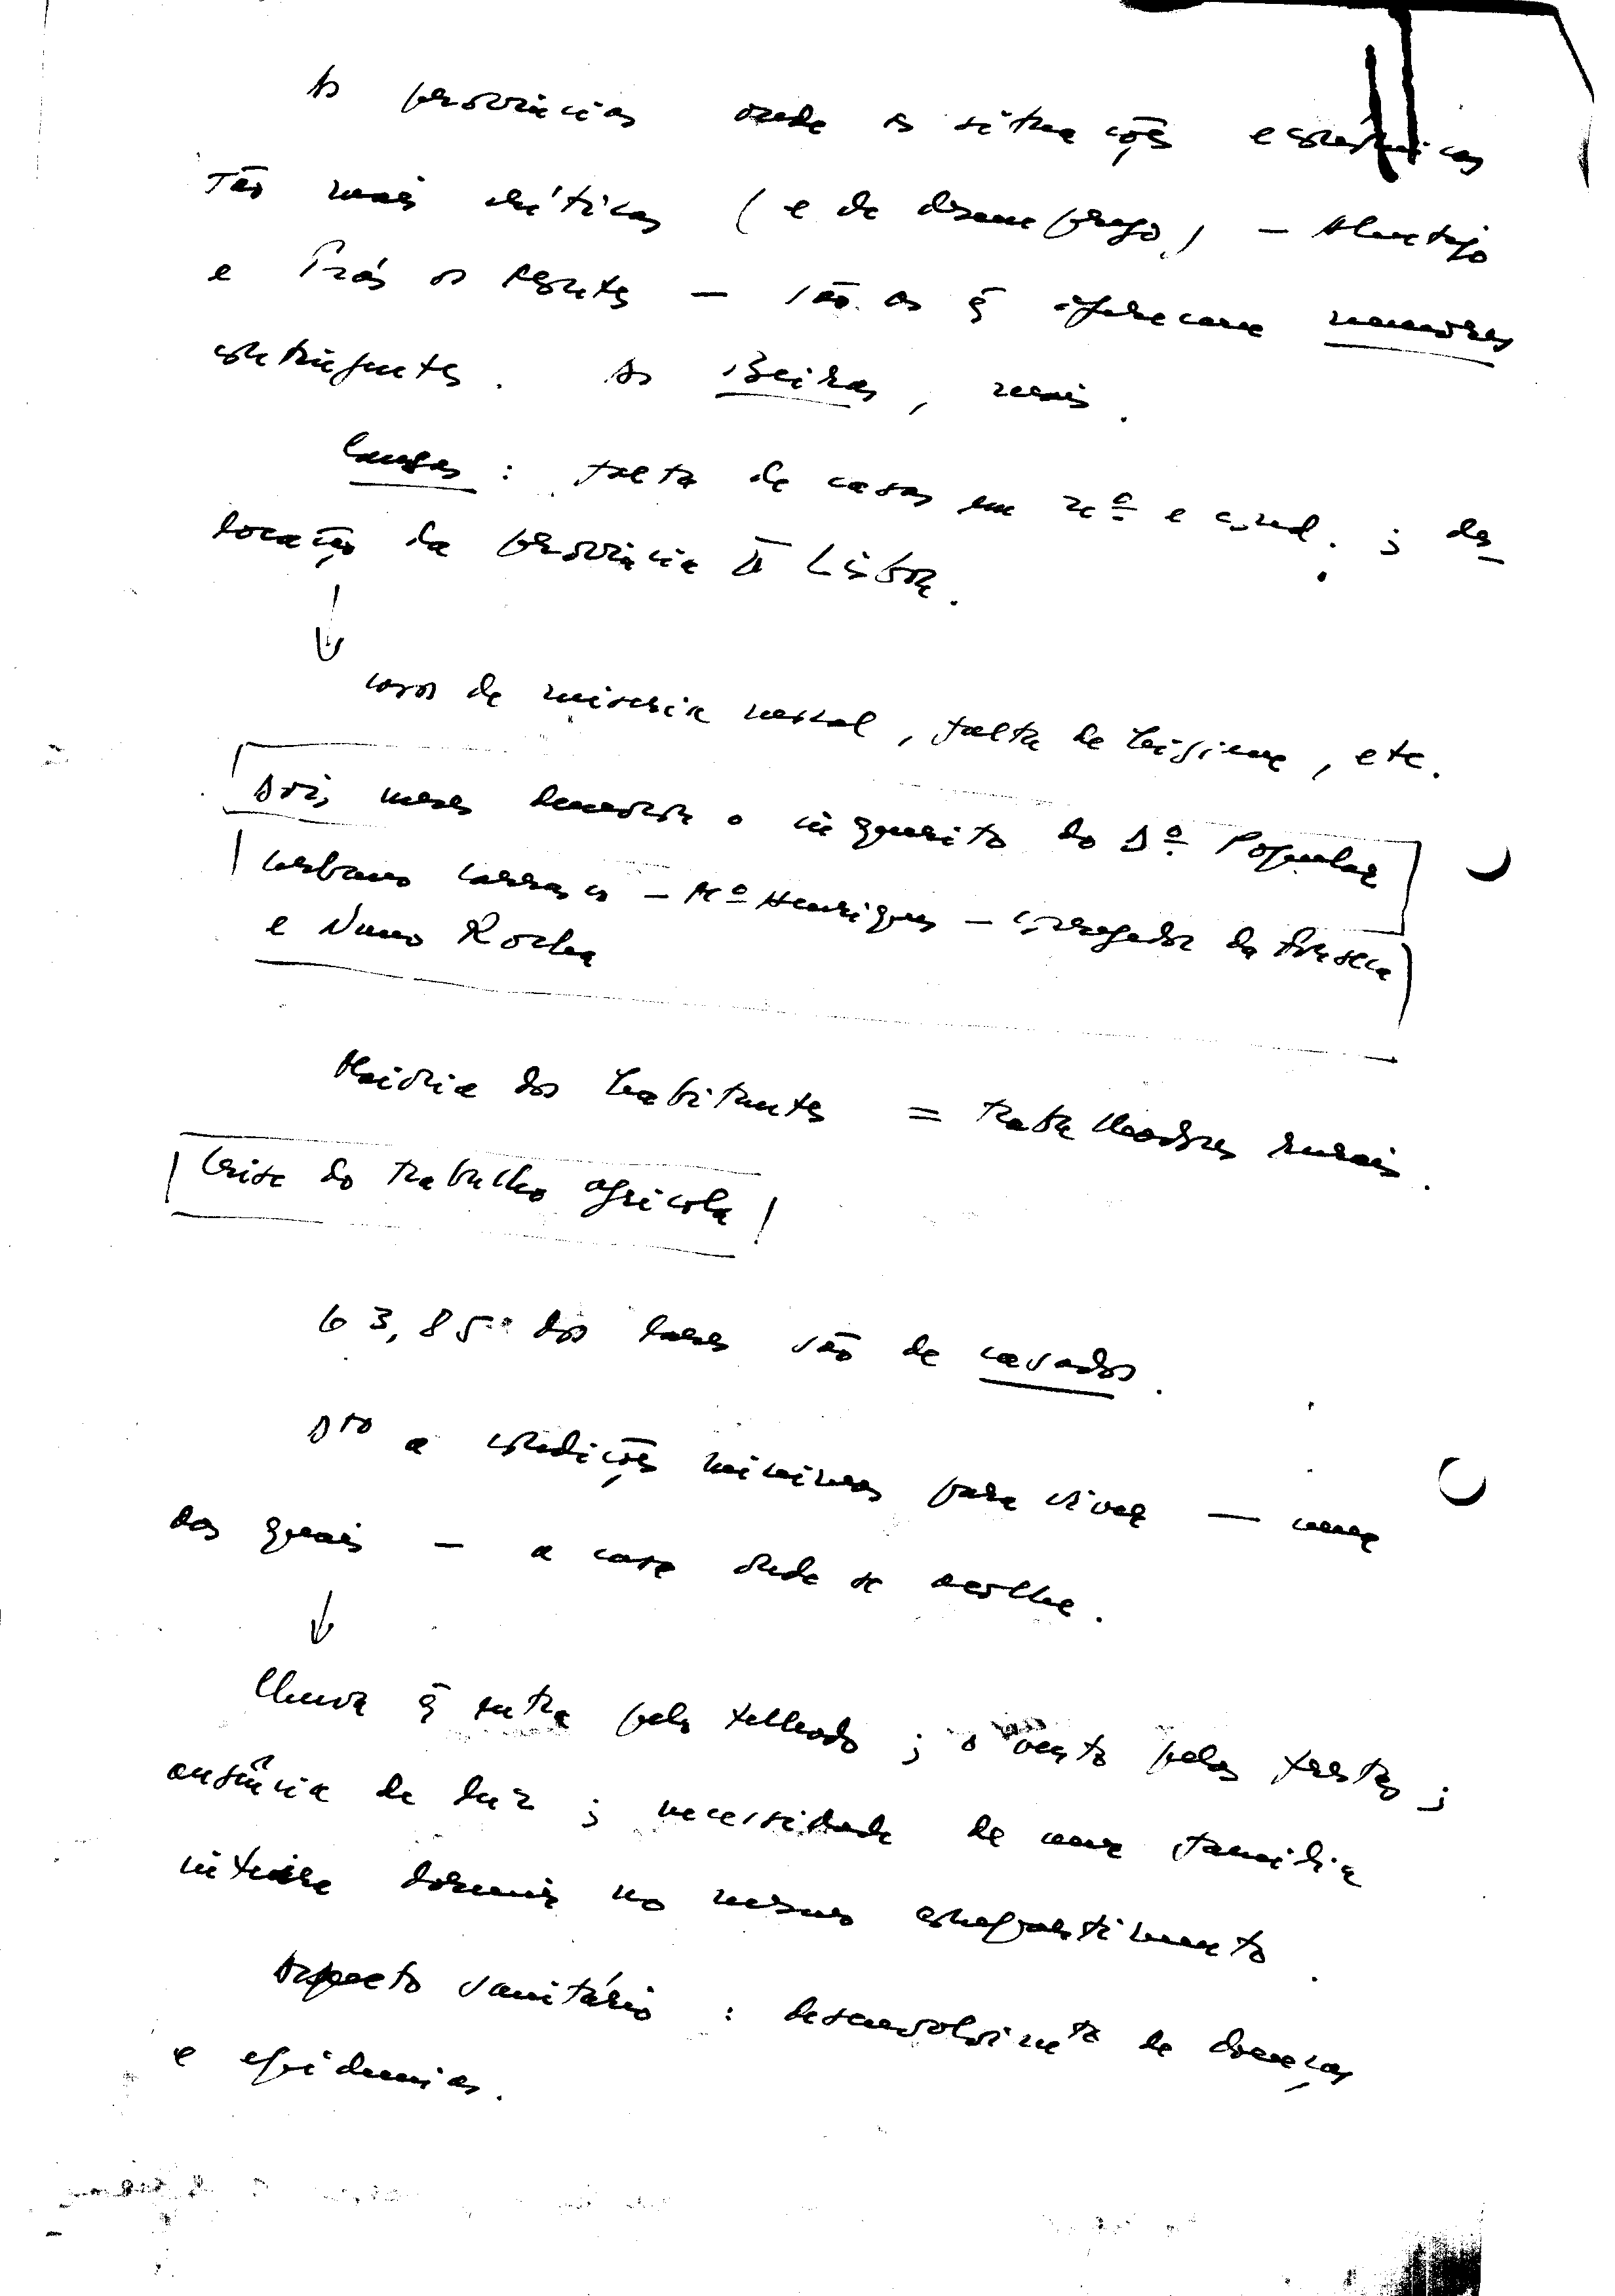 As províncias onde as situações económicas
são mais críticas (e de desemprego) — Alentejo
e Trás os Montes — são as q̃ oferecem menores
contingentes. As Beiras, mais.
Causas : falta de casas em nº e cond. ; des-
locação da província p/ Lisboa.
↓
casos de miséria moral, falta de higiene, etc.
Dois meses demorou o inquérito do Dº Popular
Urbano Carrasco — Mº Henriques — Corregedor da Fonseca
e Nuno Rocha
Maioria dos habitantes = trabalhadores rurais.
Crise do trabalho agrícola
63,85% dos lares são de casados.
Dto a condições mínimas para viver — uma
das quais — a casa onde se acolhe.
↓
Chuva q̃ entra pelo telhado ; o vento pelas frestas ;
ausência de luz ; necessidade de uma família
inteira dormir no mesmo compartimento.
Aspecto sanitário : desenvolvimto de doenças
e epidemias.